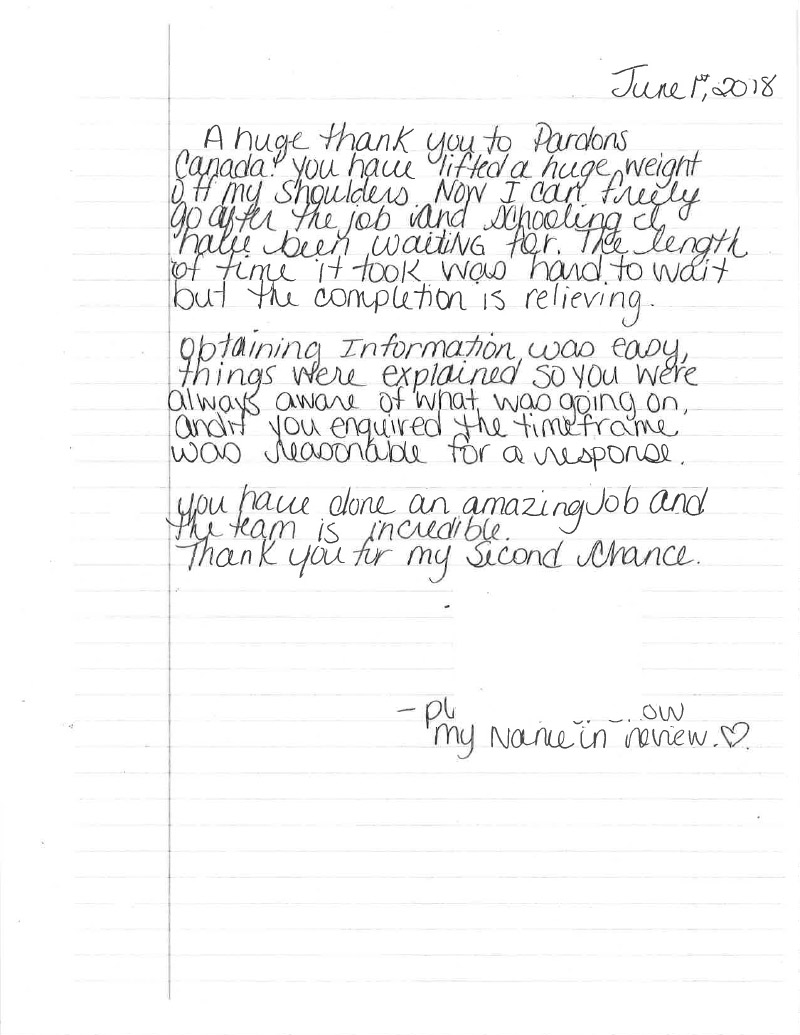 June 1st, 2018
A huge thank you to Pardons
Canada! you have lifted a huge weight
off my shoulders. Now I can freely
go after the job and schooling I
have been waiting for. The length
of time it took was hard to wait
but the completion is relieving.
Obtaining Information was easy,
things were explained so you were
always aware of what was going on,
and if you enquired the timeframe
was reasonable for a response.
you have done an amazing Job and
the team is incredible.
Thank you for my Second Chance.
- pl ow
my Name in review. ♡